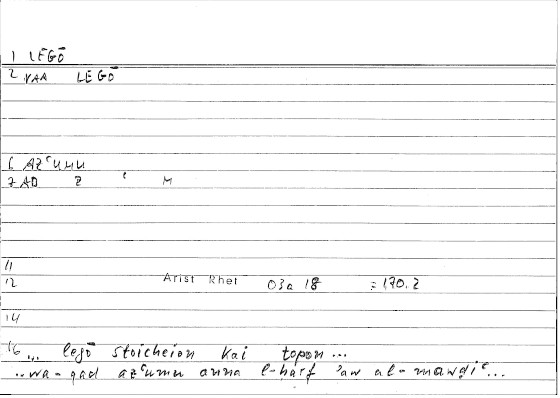 1 LEGŌ
2 VAA LEGŌ
6 AZʿUMU
7 AD Z ʿ M
11
12 Arist Rhet 03a 18 = 170.2
14
16 ... legō stoicheion kai topon ...
... wa-qad azʿumu anna l-ḥarf ʾaw al-mawḍiʿ ...